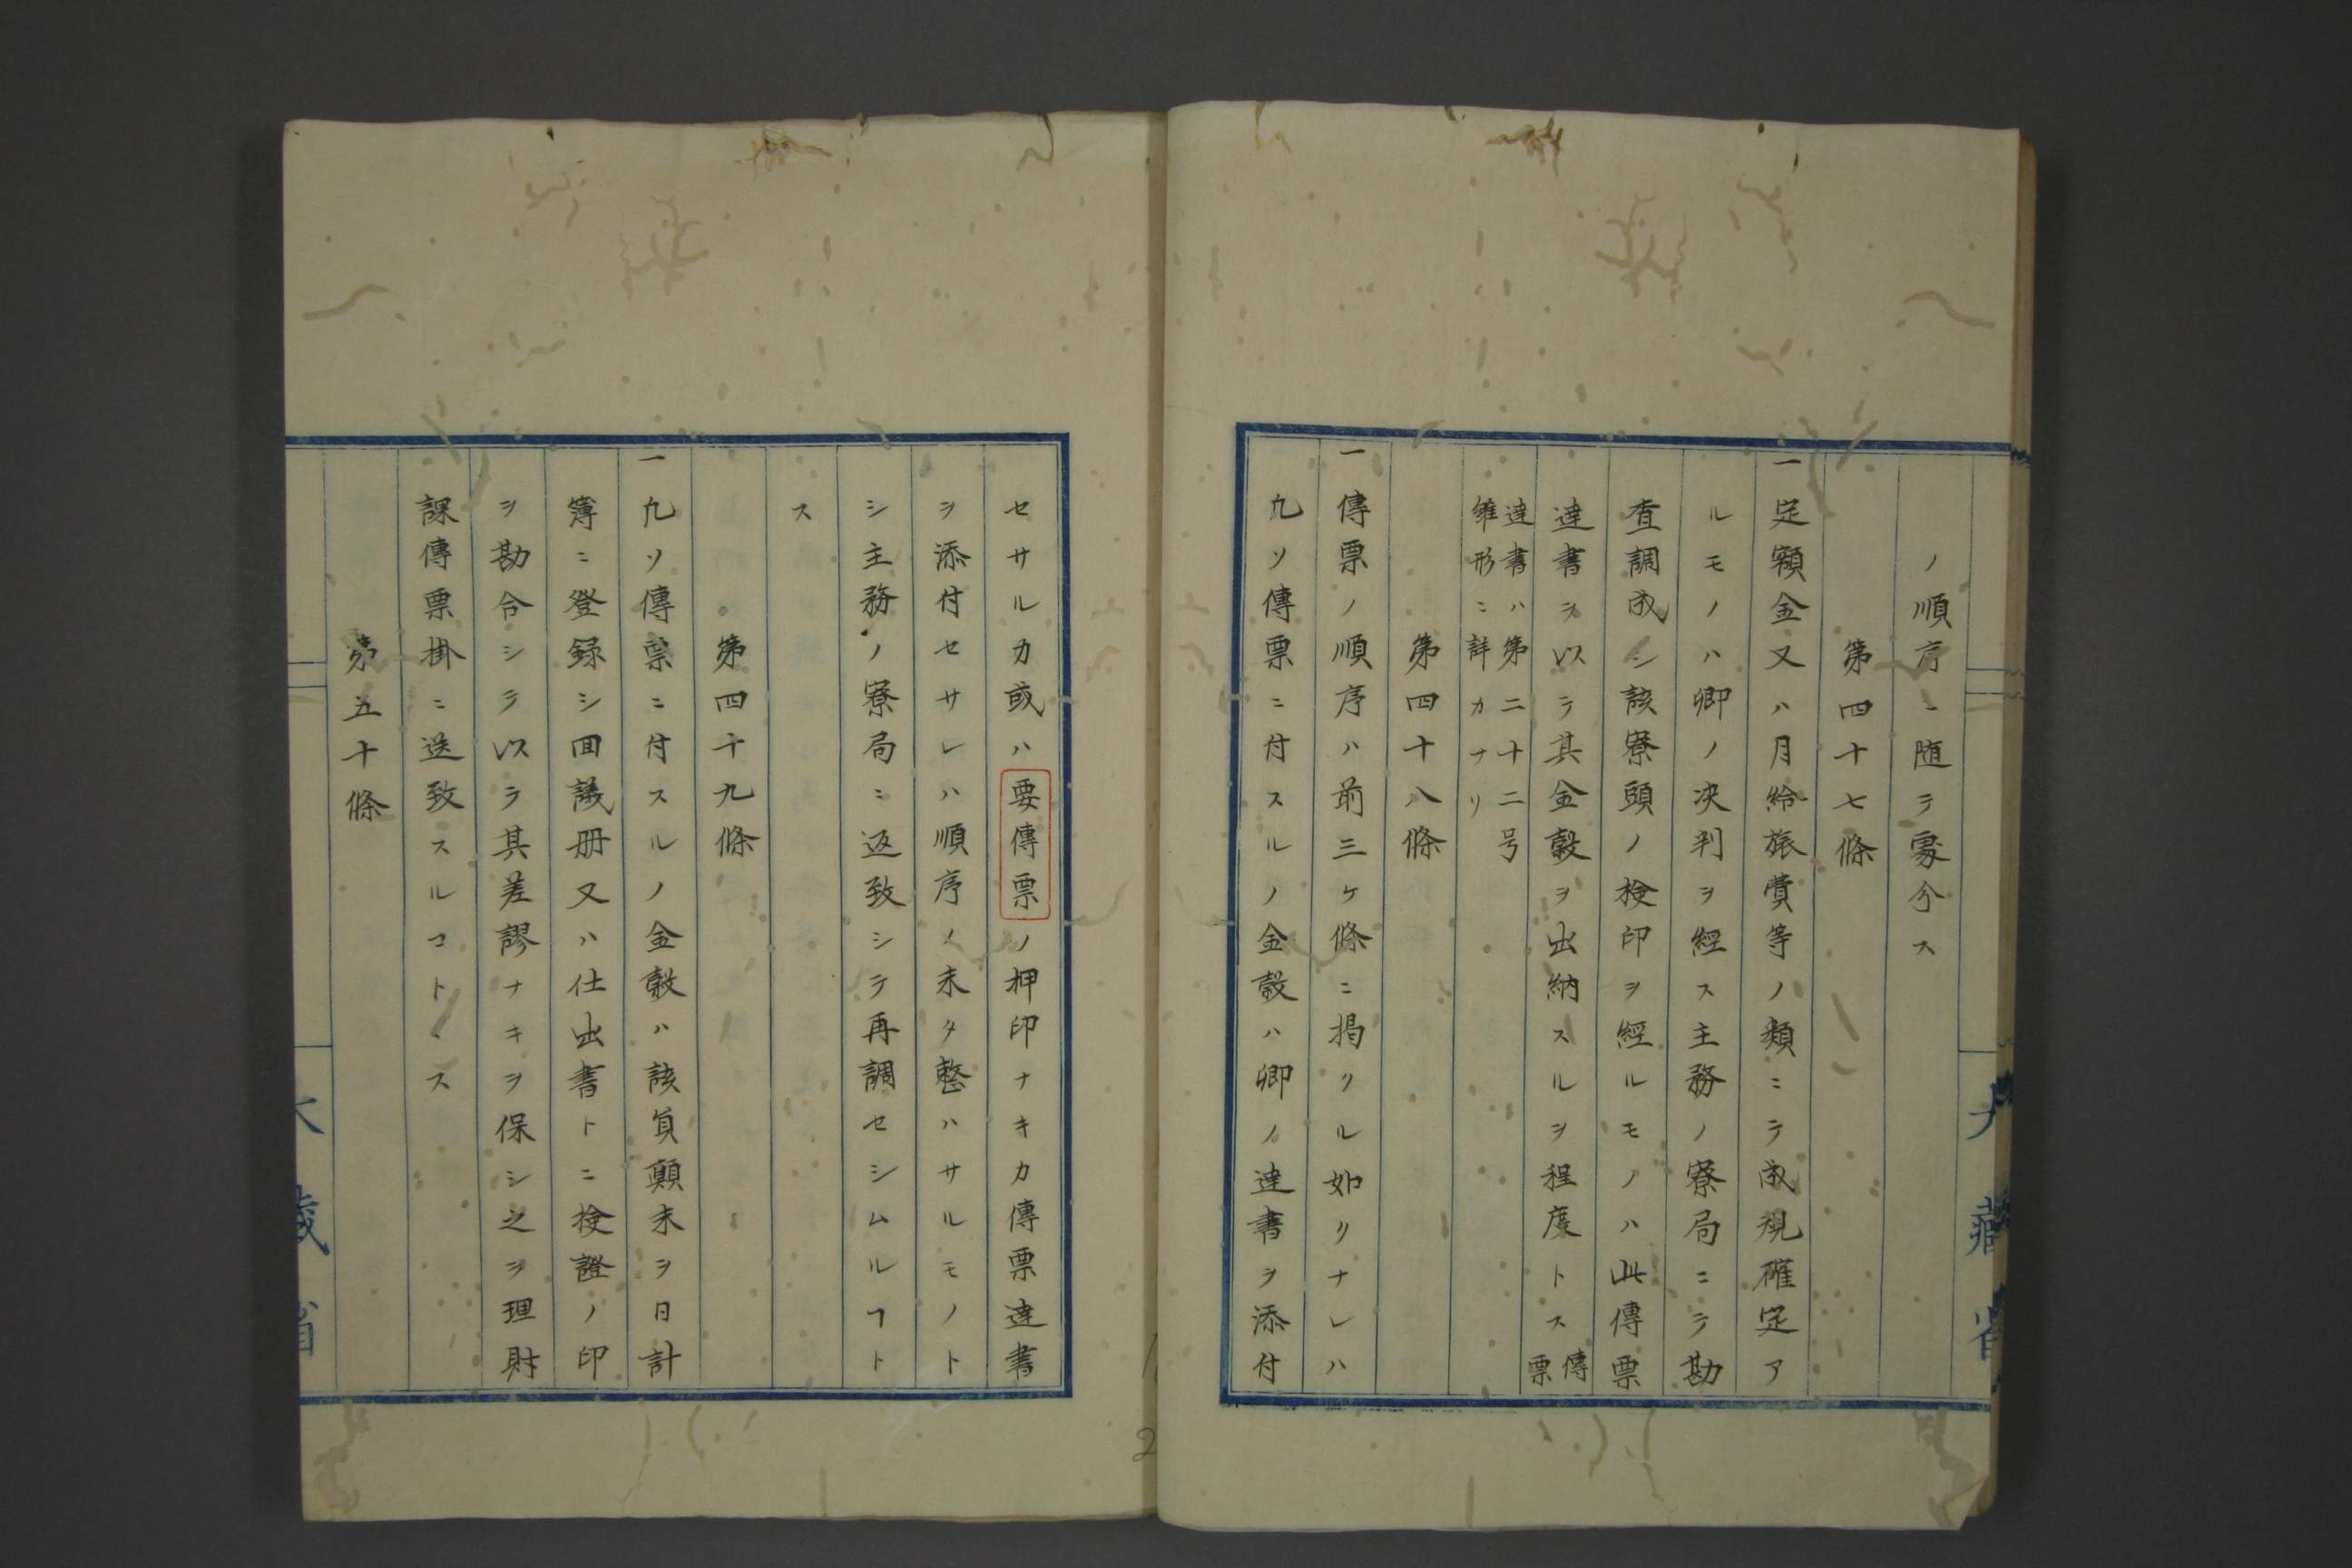 ノ順序ニ随テ處分ス
第四十七條
一定額金又ハ月給旅費等ノ類ニテ成規確定ア
ルモノハ卿ノ决判ヲ經ス主務ノ寮局ニテ勘
査調成シ該寮頭ノ撿印ヲ經ルモノハ此傳票
達書ヲ以テ其金穀ヲ出納スルヲ程度トス傳票
達書ハ第二十二号
雛形ニ詳カナリ
第四十八條
一傳票ノ順序ハ前三ケ條ニ掲クル如クナレハ
凡ソ傳票ニ付スルノ金穀ハ卿ノ達書ヲ添付
大藏省
セサルカ或ハ要傳票ノ押印ナキカ傳票達書
ヲ添付セサレハ順序ノ未タ整ハサルモノト
シ主務ノ寮局ニ返致シテ再調セシムルヿト
ス
第四十九條
一凡ソ傳票ニ付スルノ金穀ハ該負顛末ヲ日計
簿ニ登録シ回議册又ハ仕出書トニ撿證ノ印
ヲ勘合シテ以テ其差謬ナキヲ保シ之ヲ理財
課傳票掛ニ送致スルコトヽス
第五十條
大藏省